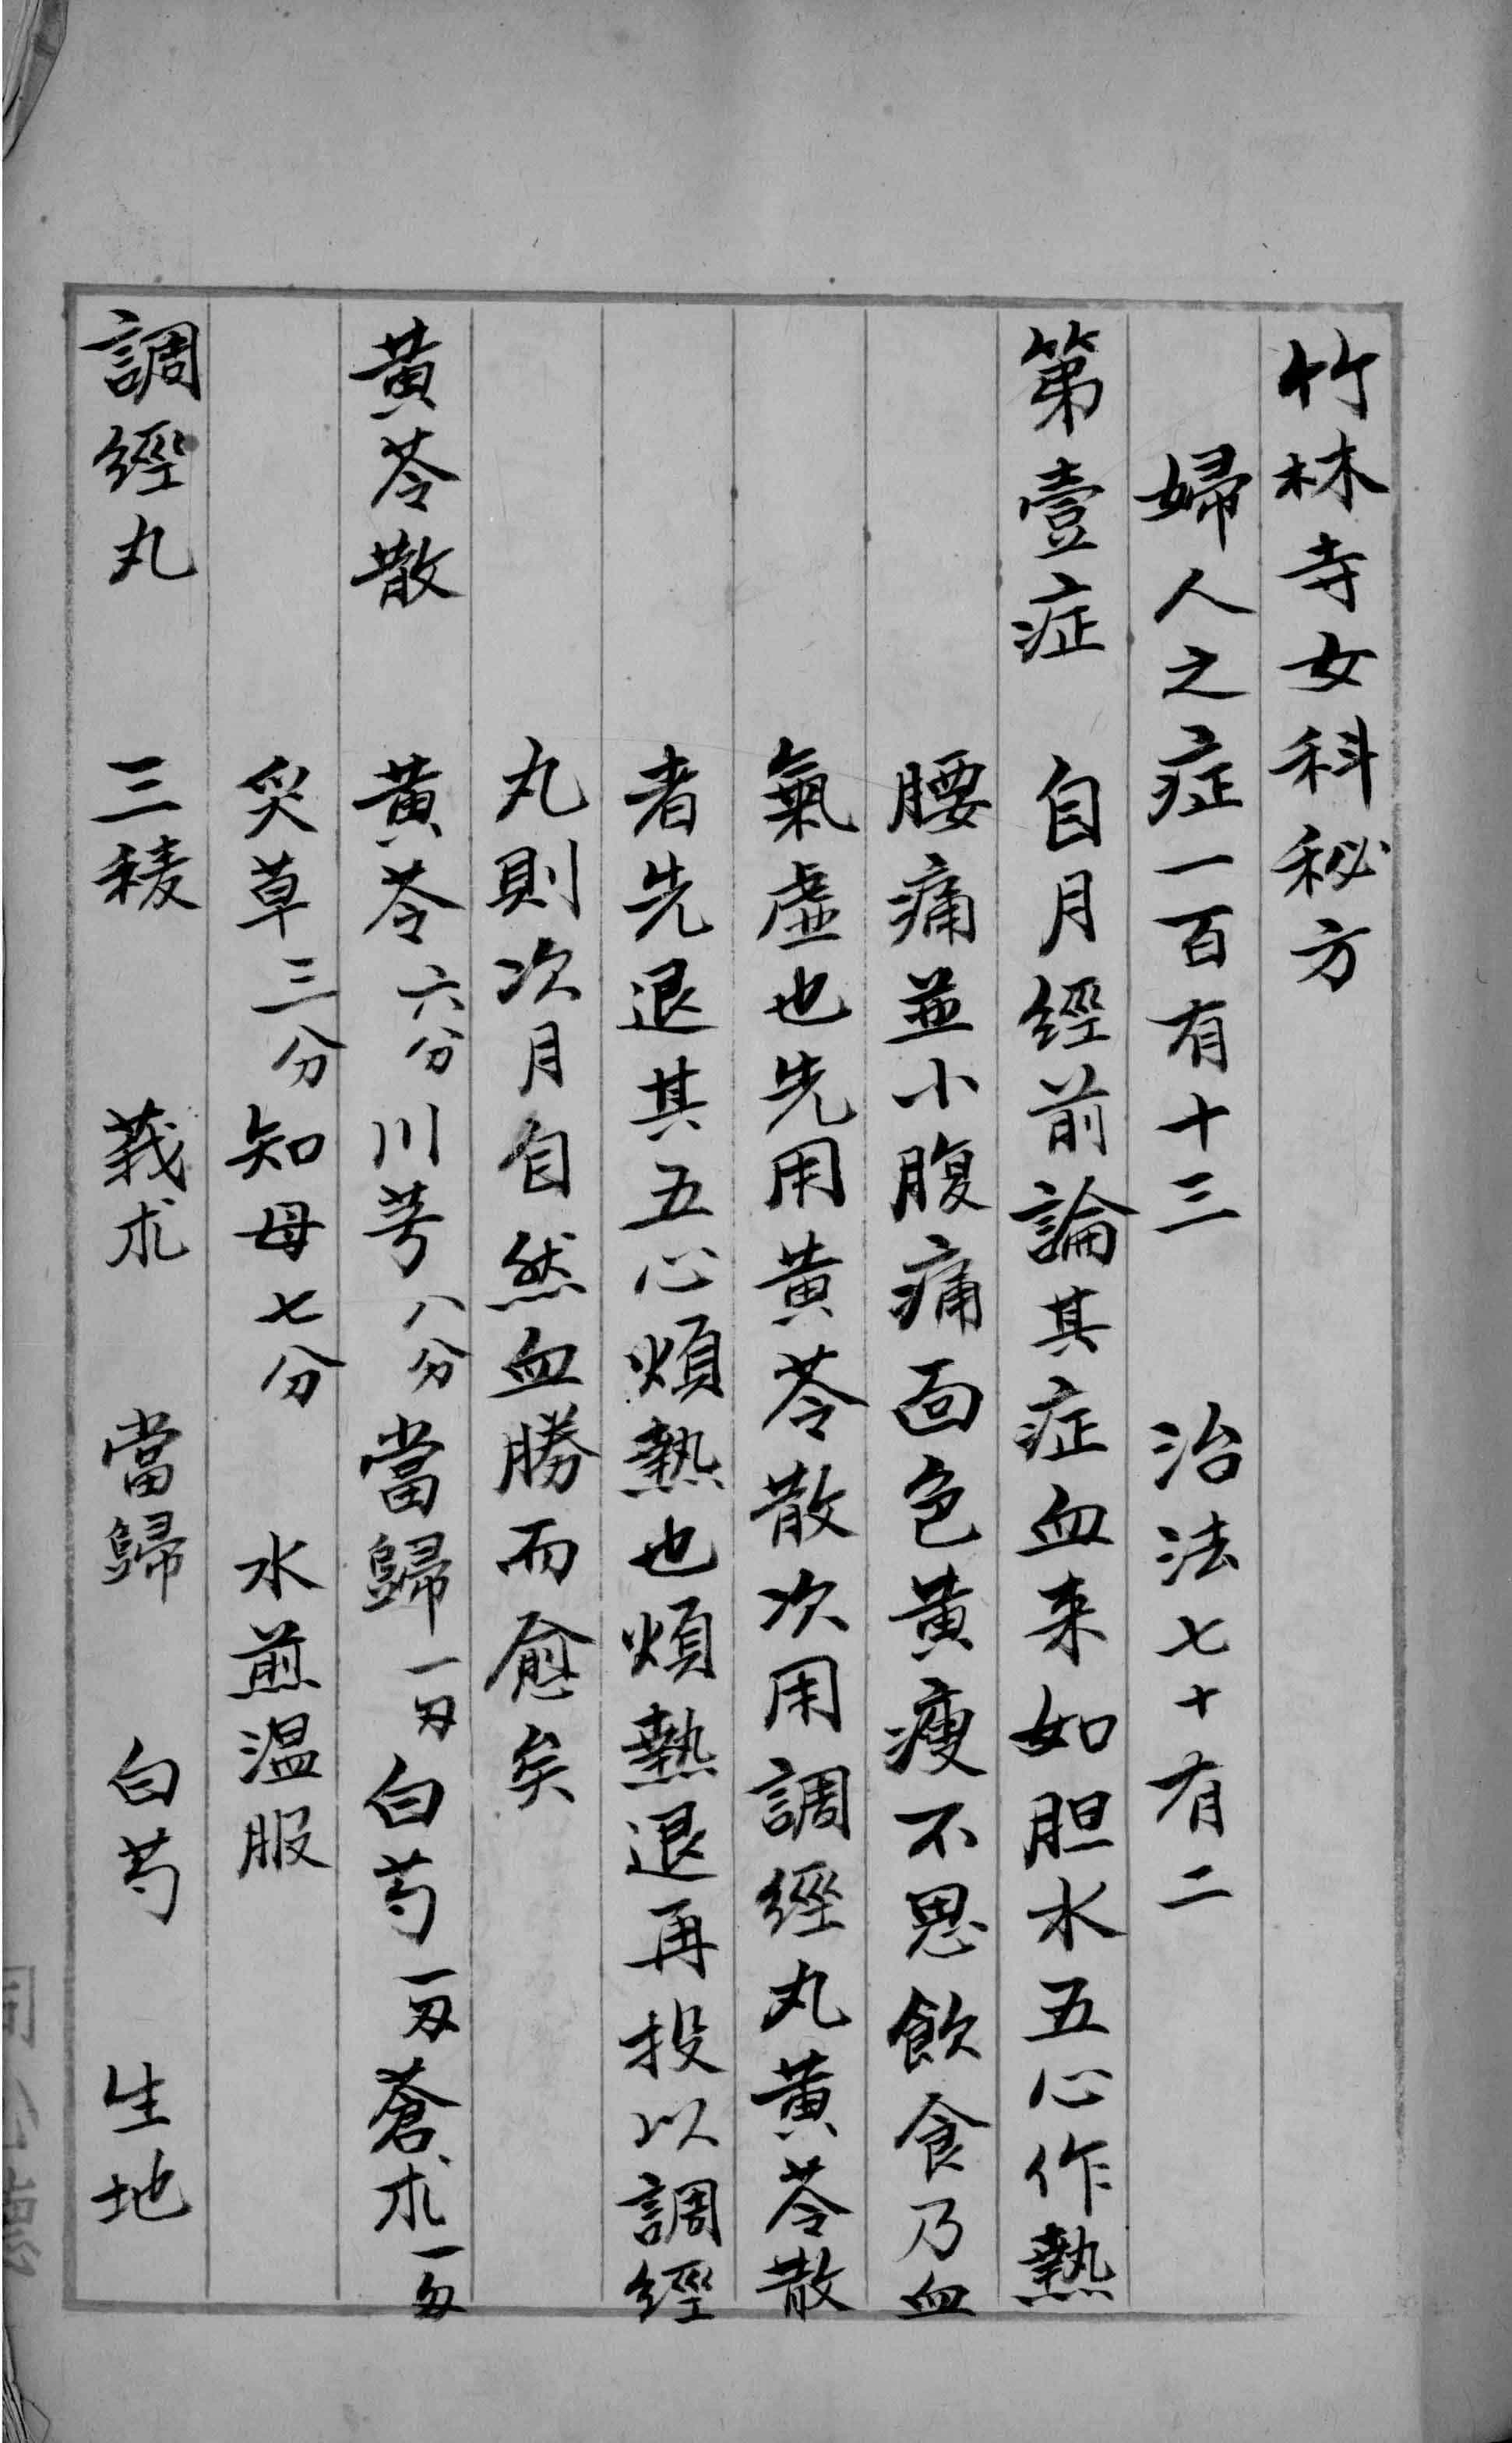 竹林寺女科秘方
婦人之症一百有十三　治法七十有二
第壹症　自月經前論其症血来如胆水五心作熱
腰痛並小腹痛面色黄瘦不思飲食乃血
氣虛也先用黄芩散次用調經丸黄芩散
者先退其五心煩熱也煩熱退再投以調經
丸則次月自然血勝而愈矣
黄芩散　黄芩六分川芎八分當歸一匁白芍一匁蒼朮一匁
炙草三分知母七分　水煎温服
調經丸　三稜　莪朮　當歸　白芍　生地